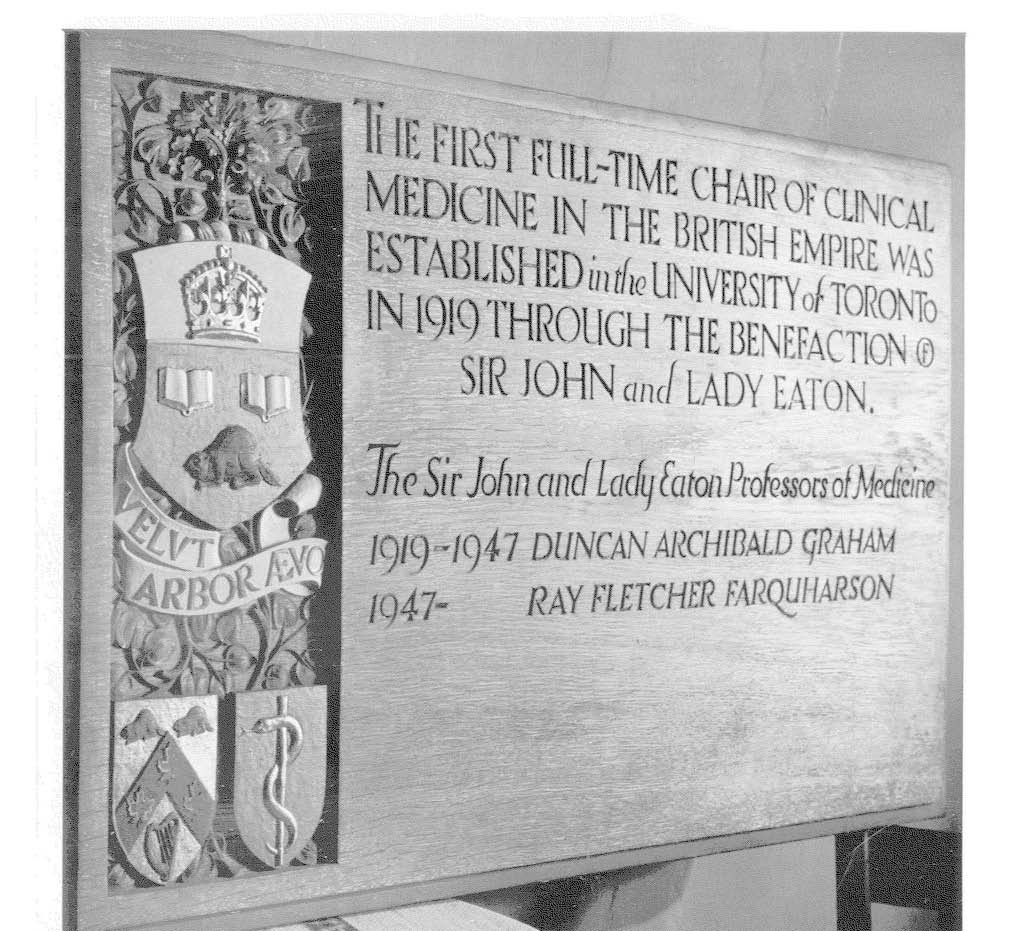 VELVT
ARBOR ÆVO
THE FIRST FULL-TIME CHAIR OF CLINICAL
MEDICINE IN THE BRITISH EMPIRE WAS
ESTABLISHED in the UNIVERSITY of TORONTO
IN 1919 THROUGH THE BENEFACTION OF
SIR JOHN and LADY EATON.
The Sir John and Lady Eaton Professors of Medicine
1919-1947 DUNCAN ARCHIBALD GRAHAM
1947- RAY FLETCHER FARQUHARSON